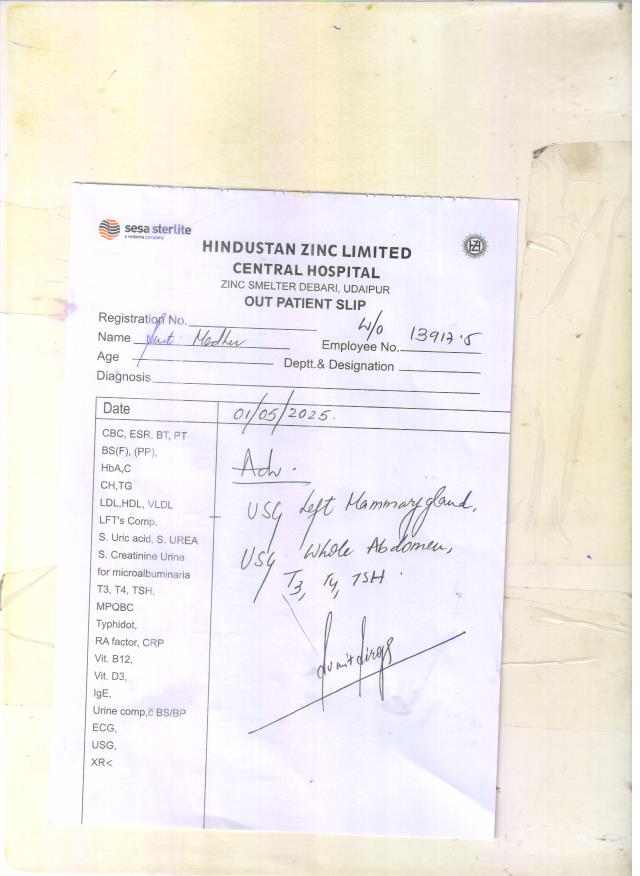 sesa sterlite
a vedanta company
HINDUSTAN ZINC LIMITED
CENTRAL HOSPITAL
ZINC SMELTER DEBARI, UDAIPUR
OUT PATIENT SLIP
Registration No.
W/o
Name Smt Madhu Employee No. 139175
Age Deptt.& Designation
Diagnosis
Date 01/05/2025.
CBC, ESR, BT, PT
BS(F), (PP),
HbA,C
CH,TG
LDL,HDL, VLDL
LFT's Comp.
S. Uric acid, S. UREA
S. Creatinine Urine
for microalbuminaria
T3, T4, TSH,
MPQBC
Typhidot,
RA factor, CRP
Vit. B12,
Vit. D3,
IgE,
Urine comp,č BS/BP
ECG,
USG,
XR<
Adv.
USG Left Mammary gland,
USG Whole Abdomen,
T3, T4, TSH.